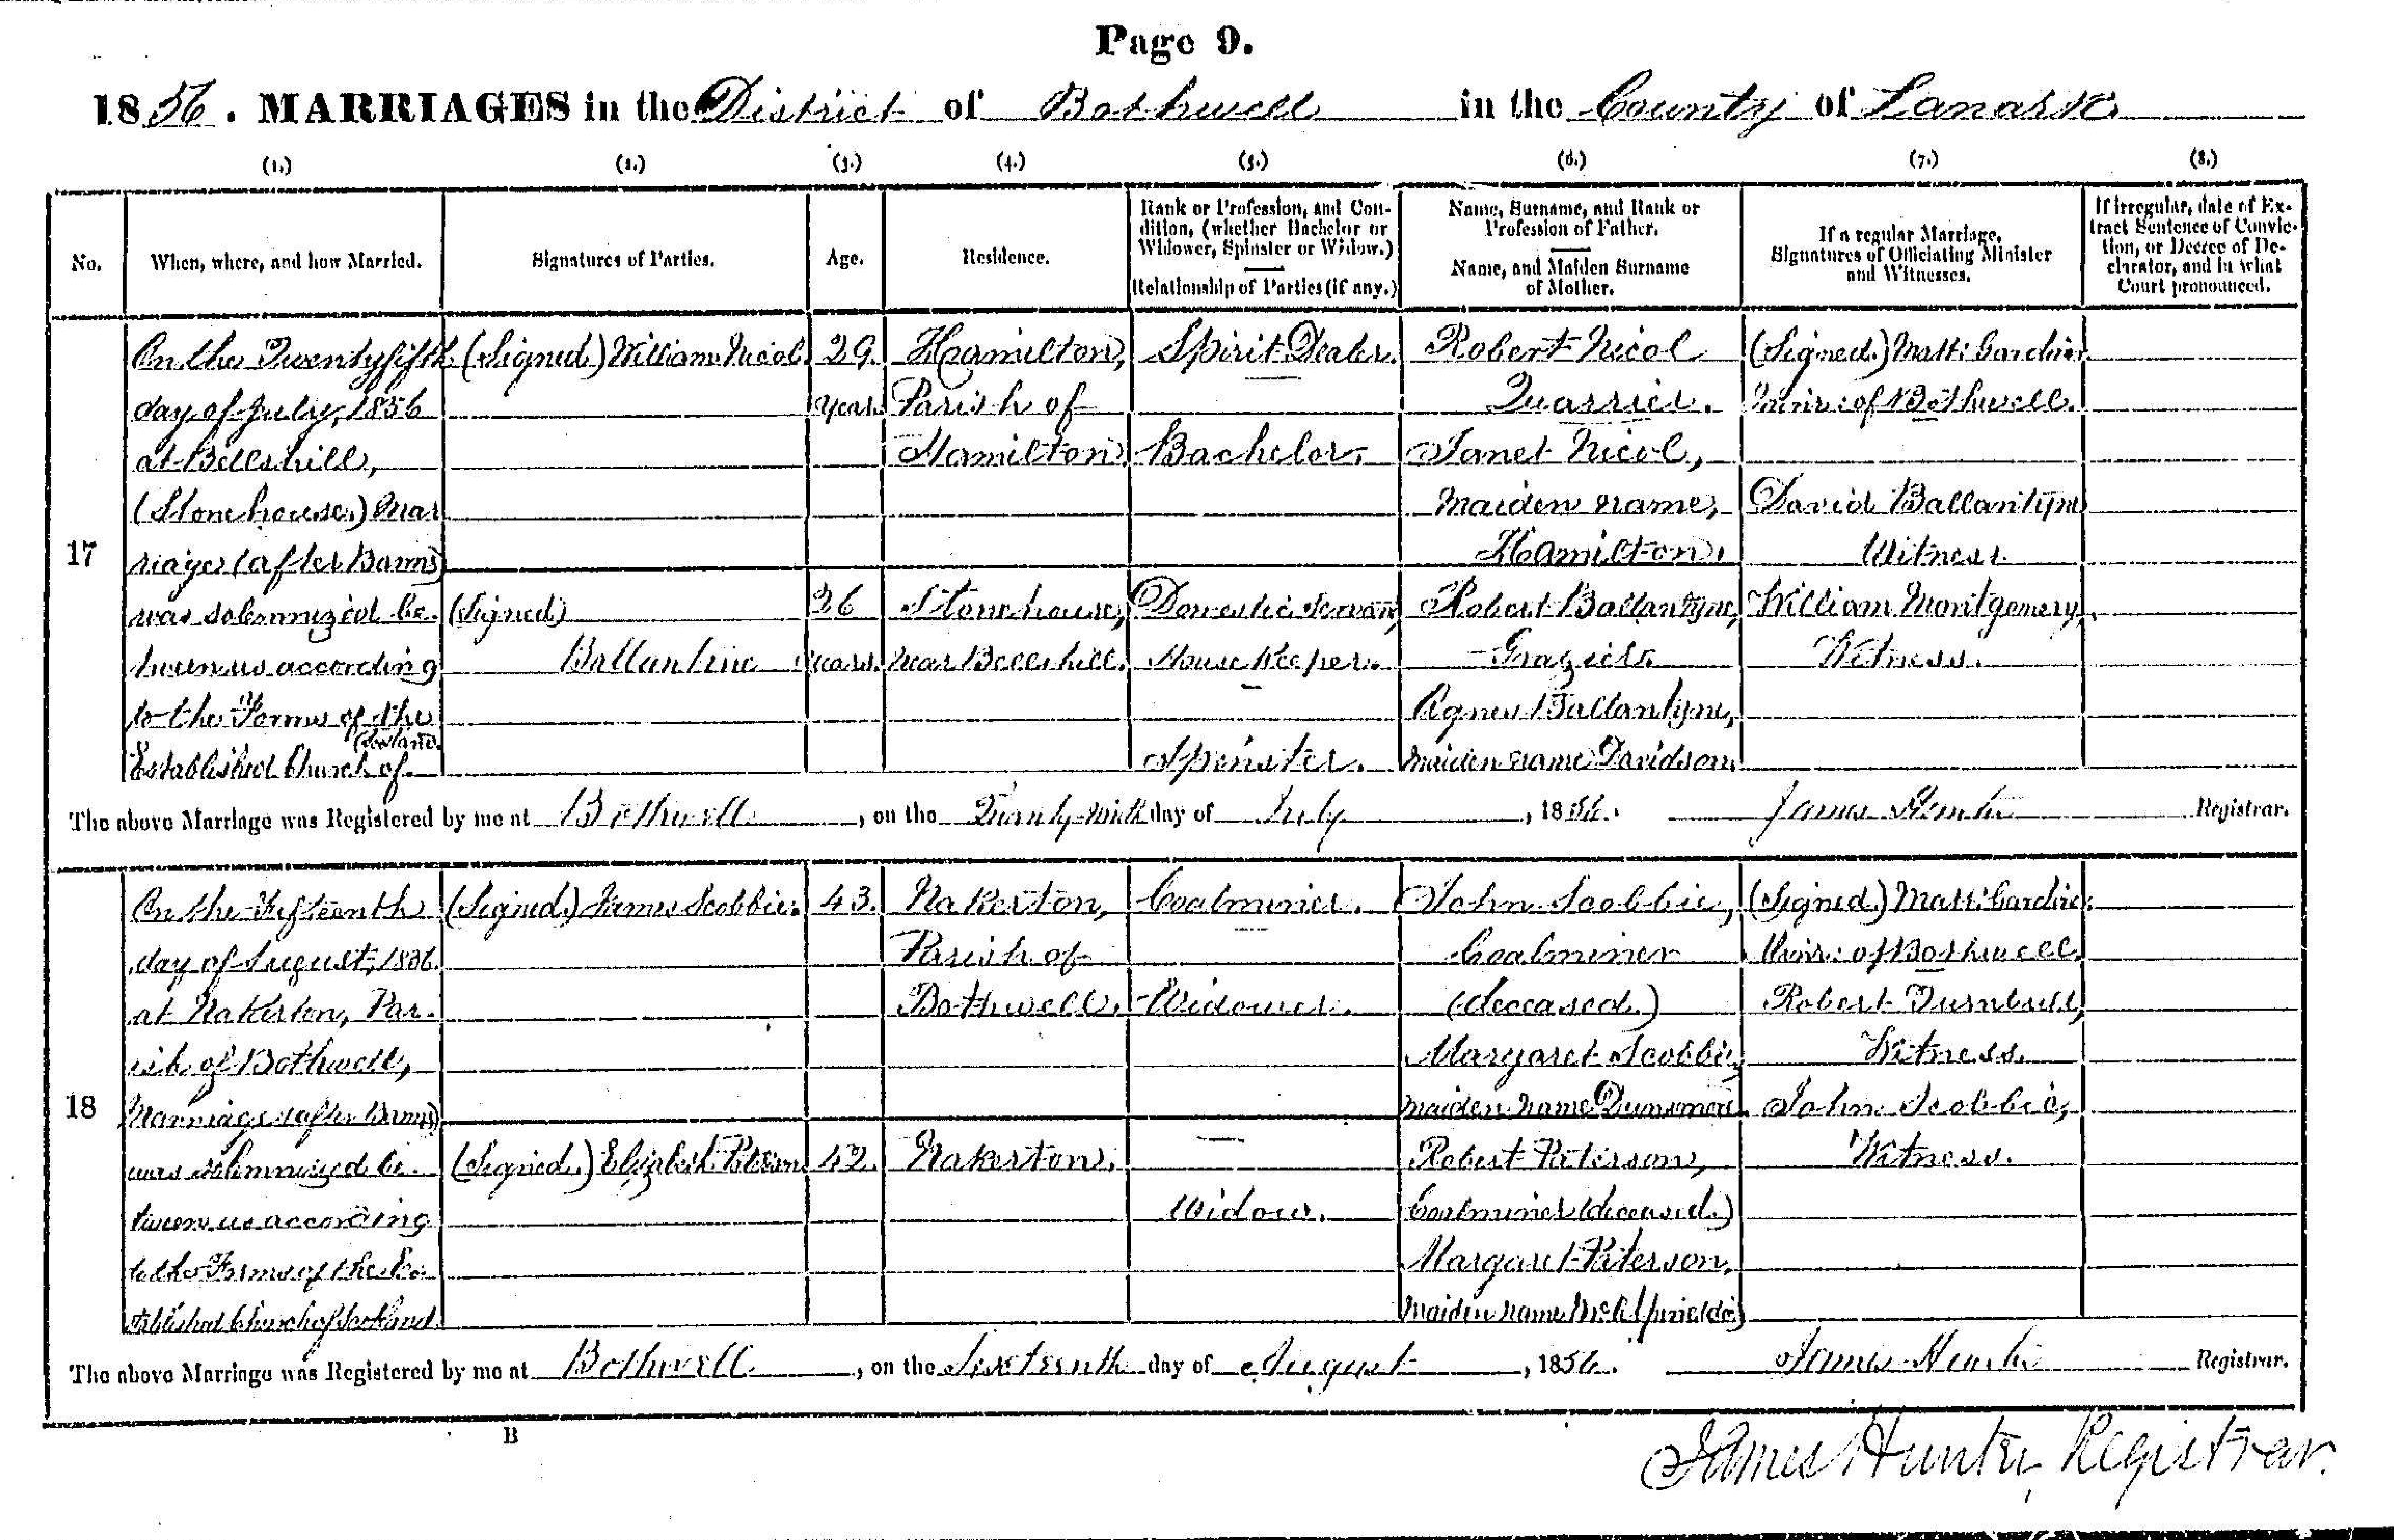 Page 9.
1856. MARRIAGES in the District of Bothwell in the County of Lanark
(1.) (2.) (3.) (4.) (5.) (6.) (7.) (8.)
No.
When, where, and how Married.
Signatures of Parties.
Age.
Residence.
Rank or Profession, and Con-
dition, (whether Bachelor or
Widower, Spinster or Widow.)
Relationship of Parties (if any.)
Name, Surname, and Rank or
Profession of Father.
Name, and Maiden Surname
of Mother.
If a regular Marriage,
Signatures of Officiating Minister
and Witnesses.
If irregular, date of Ex-
tract Sentence of Convic-
tion, or Decree of De-
clarator, and in what
Court pronounced.
17
On the Twentyfifth
day of July, 1856
at Bellshill,
(Stonehouse,) Mar
riage (after Banns)
was solemnized be-
tween us according
to the Forms of the
Established Church of
Scotland.
(Signed) William Nicol.
29.
years
Hamilton,
Parish of
Hamilton
Spirit Dealer.
Bachelor.
Robert Nicol
Quarrier.
Janet Nicol,
Maiden name,
Hamilton.
(Signed.) Matt: Gardner.
Minr: of Bothwell.
David Ballantyne
Witness
(Signed)
Ballantine
26
years.
Stonehouse,
near Bellshill.
Domestic Servant,
House Keeper.
Spinster.
Robert Ballantyne,
Grazier.
Agnes Ballantyne,
maiden name Davidson.
William Montgomery,
Witness.
The above Marriage was Registered by me at Bothwell, on the Twenty-ninth day of July, 1856. James Hunter Registrar.
18
On the Fifteenth
day of August, 1856.
at Nakerton, Par-
ish of Bothwell,
Marriage (after Banns)
was solemnized be-
tween us according
to the Forms of the Es-
tablished Church of Scotland.
(Signed.) James Scobbie.
43.
Nakerton,
Parish of
Bothwell.
Coalminer.
Widower.
John Scobbie,
Coalminer
(deceased.)
Margaret Scobbie,
maiden name Dunsmore.
(Signed.) Matt: Gardner.
Minr: of Bothwell.
Robert Turnbull,
Witness.
John Scobbie,
Witness.
(Signed.) Elizabeth Paterson
42.
Nakerton.
Widow.
Robert Paterson,
Coalminer (deceased.)
Margaret Paterson,
maiden name
The above Marriage was Registered by me at Bothwell, on the Sixteenth day of August, 1856. James Hunter Registrar.
B
James Hunter, Registrar.